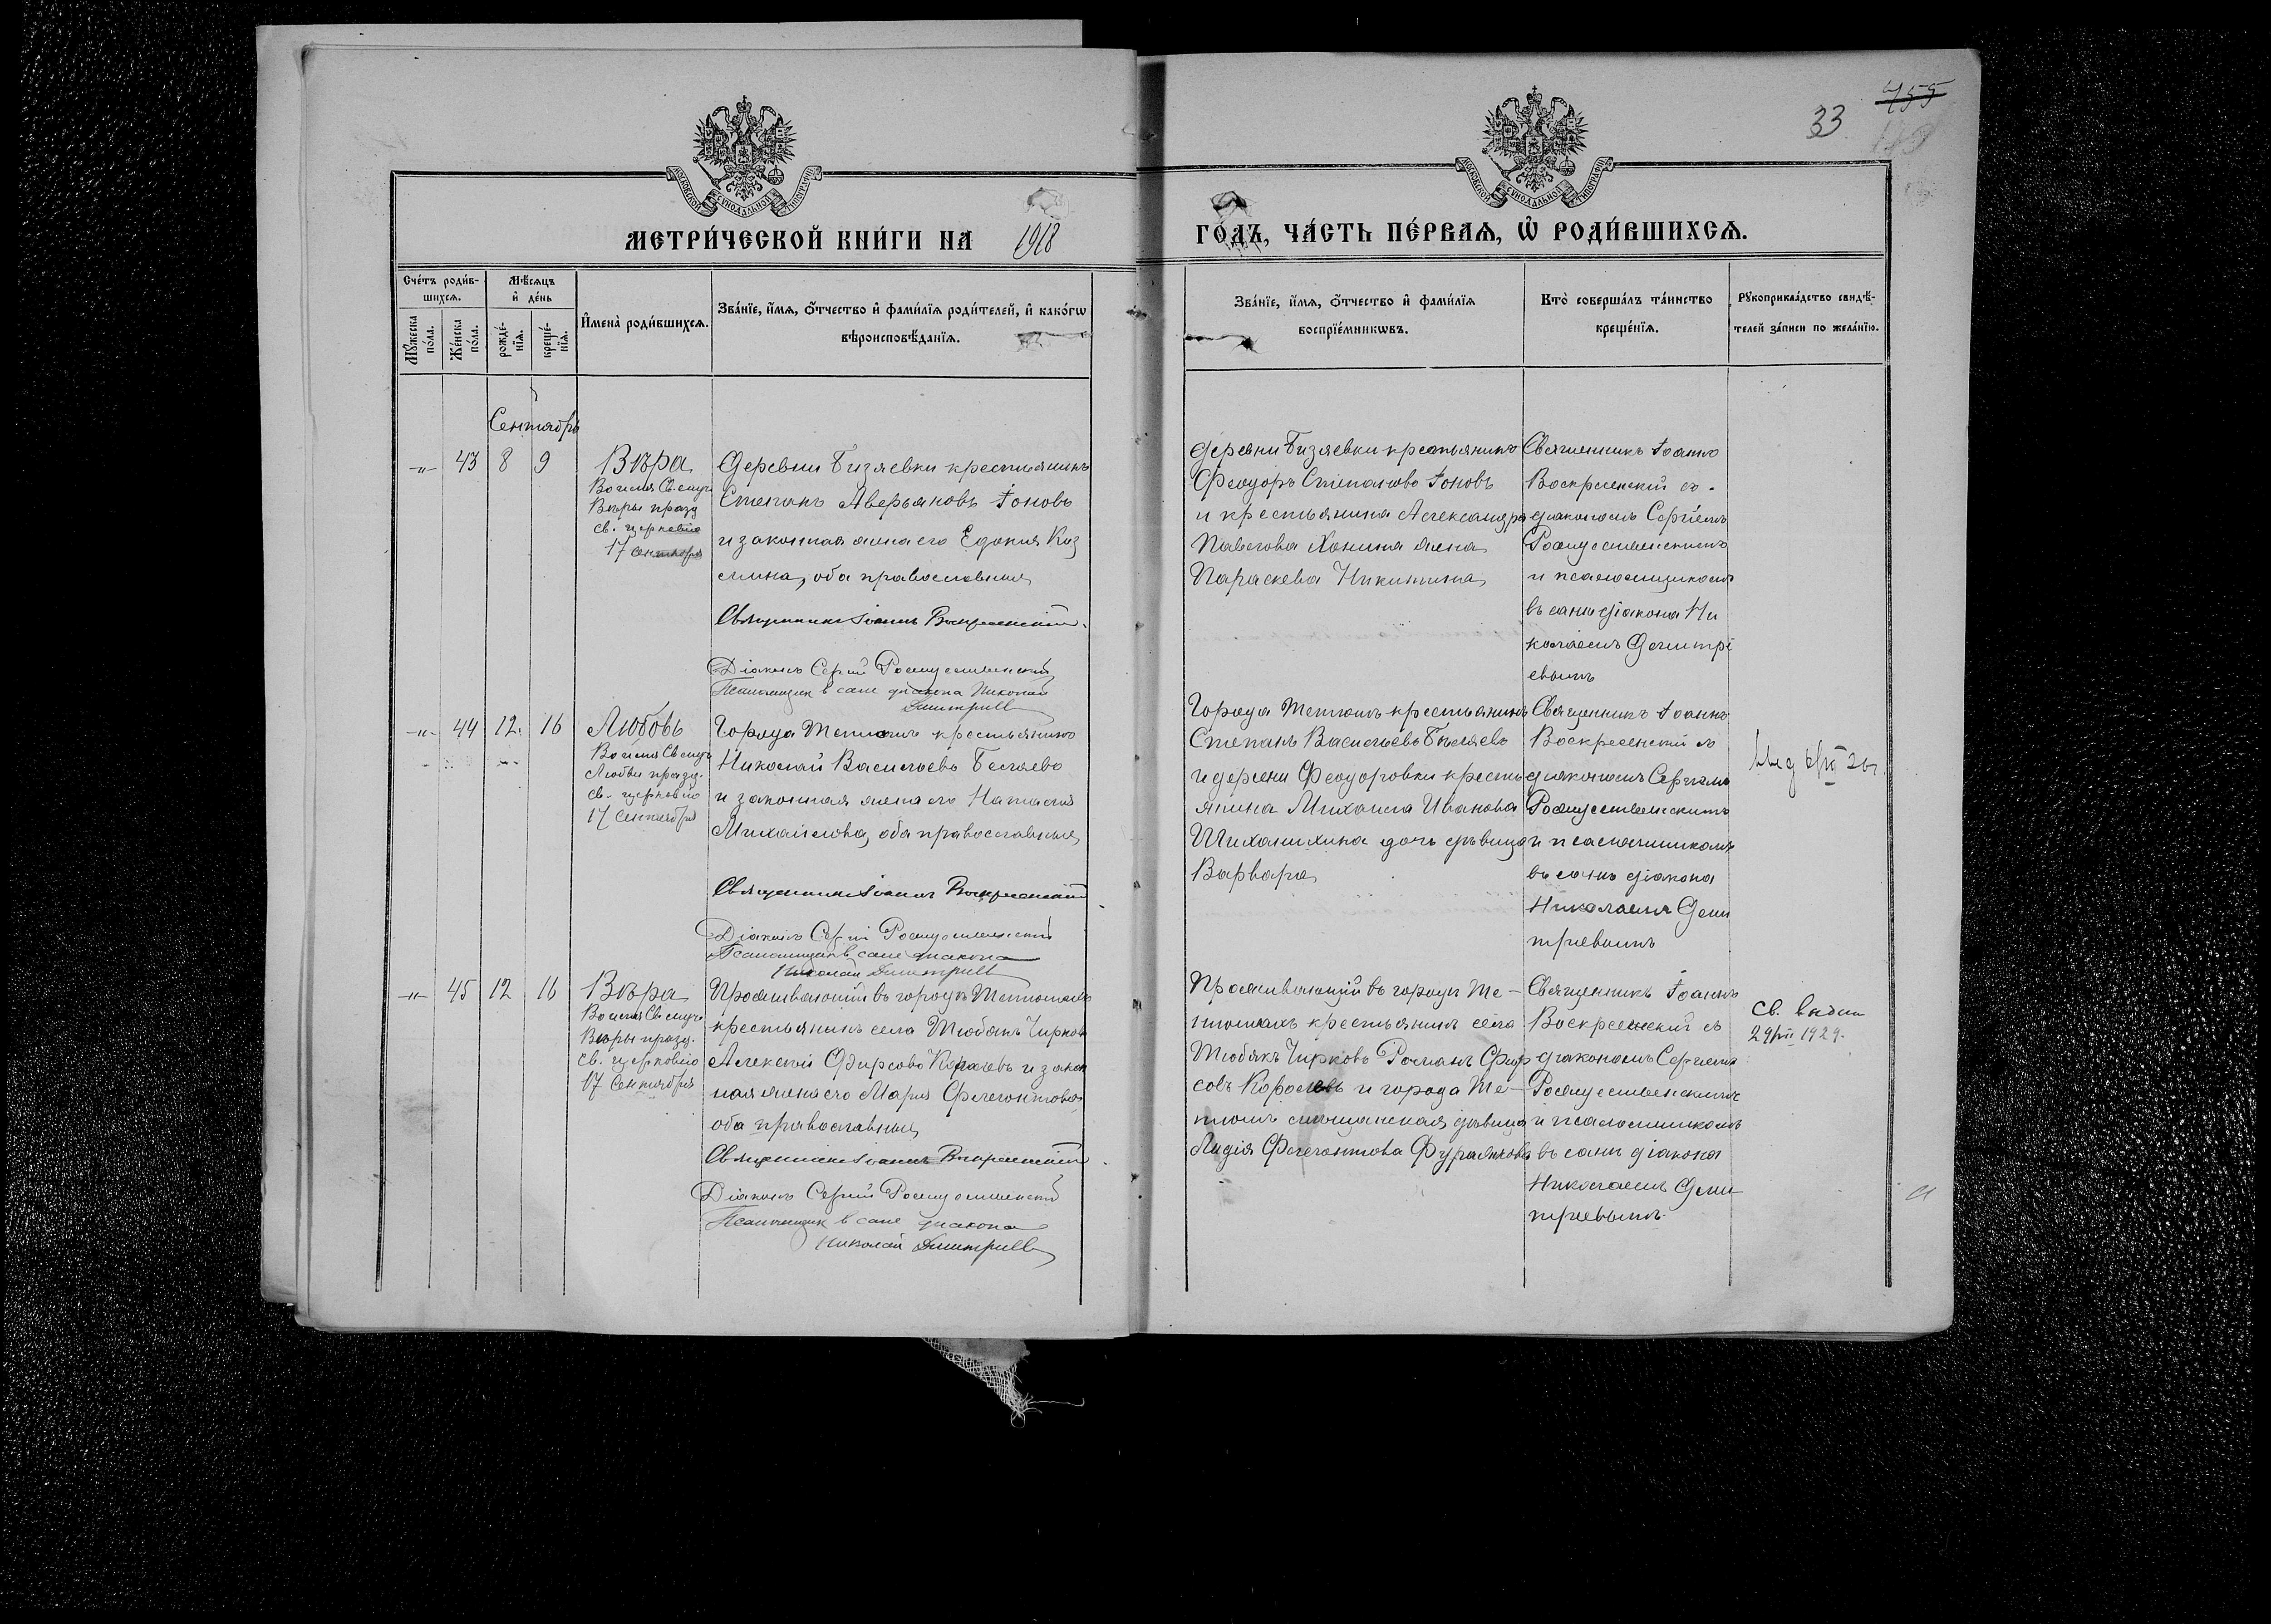 455
33
МОСКОВСКОЙ СѴНОДАЛЬНОЙ ТИПОГРАФІИ
МОСКОВСКОЙ СѴНОДАЛЬНОЙ ТИПОГРАФІИ
МЕТРИ́ЧЕСКОЙ КНИ́ГИ НА 1918
ГО́ДЪ, ЧА́СТЬ ПЕ́РВАѦ, Ѡ҆ РОДИ́ВШИХСѦ.
Сче́тъ роди́в-
шихсѧ.
Мѹ́жеска
по́ла.
Же́нска
по́ла.
Мѣ́сѧцъ
и҆ де́нь
рожде́-
нїѧ.
креще́-
нїѧ.
И҆мена̀ роди́вшихсѧ.
Зва́нїе, и҆́мѧ, о҆́тчество и҆ фами́лїѧ роди́телей, и҆ како́гѡ
вѣроисповѣ́данїѧ.
Зва́нїе, и҆́мѧ, о҆́тчество и҆ фами́лїѧ
воспрїе́мникѡвъ.
Кто̀ соверша́лъ та́инство
креще́нїѧ.
Рѹкоприкла́дство свидѣ́-
телей за́писи по жела́нїю.
Сентябрь
-"- 43 8 9
Вѣра
Во имя Св. муч.
Вѣры празд
св. церковію
17 сентября
Деревни Бизяевки крестьянинъ
Степанъ Аверьяновъ Іоновъ
и законная жена его Едокия Коз
мина, оба православные
Священникъ Іоаннъ Воскресенскій.
Діаконъ Сергій Рождественский
Псаломщик в сане диакона Николай
Димитриев
Деревни Бизяевки крестьянинъ
Феодоръ Степановъ Іоновъ
и крестьянина Александра
Павлова Хонина жена
Параскева Никитина
Священникъ Іоаннъ
Воскресенскій съ
діакономъ Сергіемъ
Рождественскимъ
и псаломщикомъ
въ санѣ діакона Ни
колаемъ Димитрі
евымъ
-"- 44 12. 16
Любовь
Во имя Св муч
Любви празд.
св. церковію
17 Сентября
Города Тетюшъ крестьянинъ
Николай Васильевъ Беляевъ
и законная жена его Наталія
Михайлова, оба православные
Священникъ Іоаннъ Воскресенскій
Діаконъ Сергій Рождественский
Псаломщик в сане диакона
Николай Димитриев
Города Тетюшъ крестьянинъ
Степанъ Васильевъ Бѣляевъ
и деревни Феодоровки кресть
янина Михаила Иванова
Шиханихина дочь дѣвица
Варвара
Священникъ Іоаннъ
Воскресенскій съ
діакономъ Сергіемъ
Рождественскимъ
и псаломщикомъ
въ санѣ діакона
Николаемъ Дими
тріевымъ
-"- 45 12 16
Вѣра
Во имя Св муч
Вѣры празд.
св. церковію
17 Сентября
Проживающій въ городѣ Тетюшахъ
крестьянинъ села Тюбякъ Чирковъ
Алексій Фирсовъ Королевъ и закон
ная жена его Марія Флегонтова
оба православные
Священникъ Іоаннъ Воскресенскій
Діаконъ Сергій Рождественский
Псаломщик в сане диакона
Николай Димитриев
Проживающій въ городѣ Те-
тюшахъ крестьянинъ села
Тюбякъ Чирковъ Романъ Фир
совъ Королевъ и города Те-
тюшъ мѣщанская дѣвица
Лидія Флегонтова Фуражкова
Священникъ Іоаннъ
Воскресенскій съ
діакономъ Сергіемъ
Рождественскимъ
и псаломщикомъ
въ санѣ діакона
Николаемъ Дими-
тріевымъ.
св. выдан
29/VII 1929.